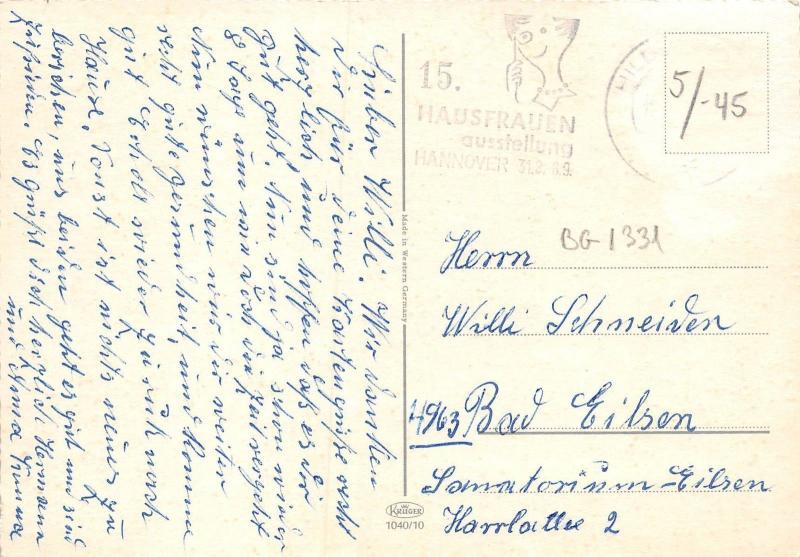 Lieber Willi. Wir danken
Dir für deine Kartengrüße recht
herzlich, und hoffen daß es dir
gut geht. Nun sind ja schon wieder
8 Tage um wie doch die Zeit vergeht
Nun wünschen wir dir weiter
recht gute Gesundheit, und komme
gut erholt wieder zurück nach
Hause. Sonst ist nichts neues zu
berichten, uns beiden geht es gut und sind
zufrieden. Es grüßt dich herzlich Hermann
und Anna
15.
HAUSFRAUEN
ausstellung
HANNOVER 31.8. 8.9.
5/-45
BG-1331
Herrn
Willi Schneider
4963 Bad Eilsen
Sanatorium-Eilsen
Harrlallee 2
Made in Western Germany
KRÜGER
1040/10